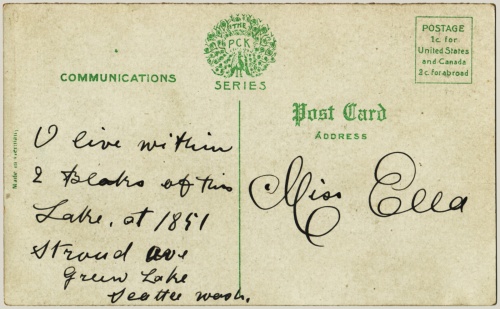 THE
PCK
SERIES
COMMUNICATIONS
POSTAGE
1c. for
United States
and Canada
2c. for abroad
Post Card
ADDRESS
Made in Germany.
I live within
2 Bloks of this
Lake, at 1851
Stroud ave
Green Lake
Seattle Wash.
Miss Ella